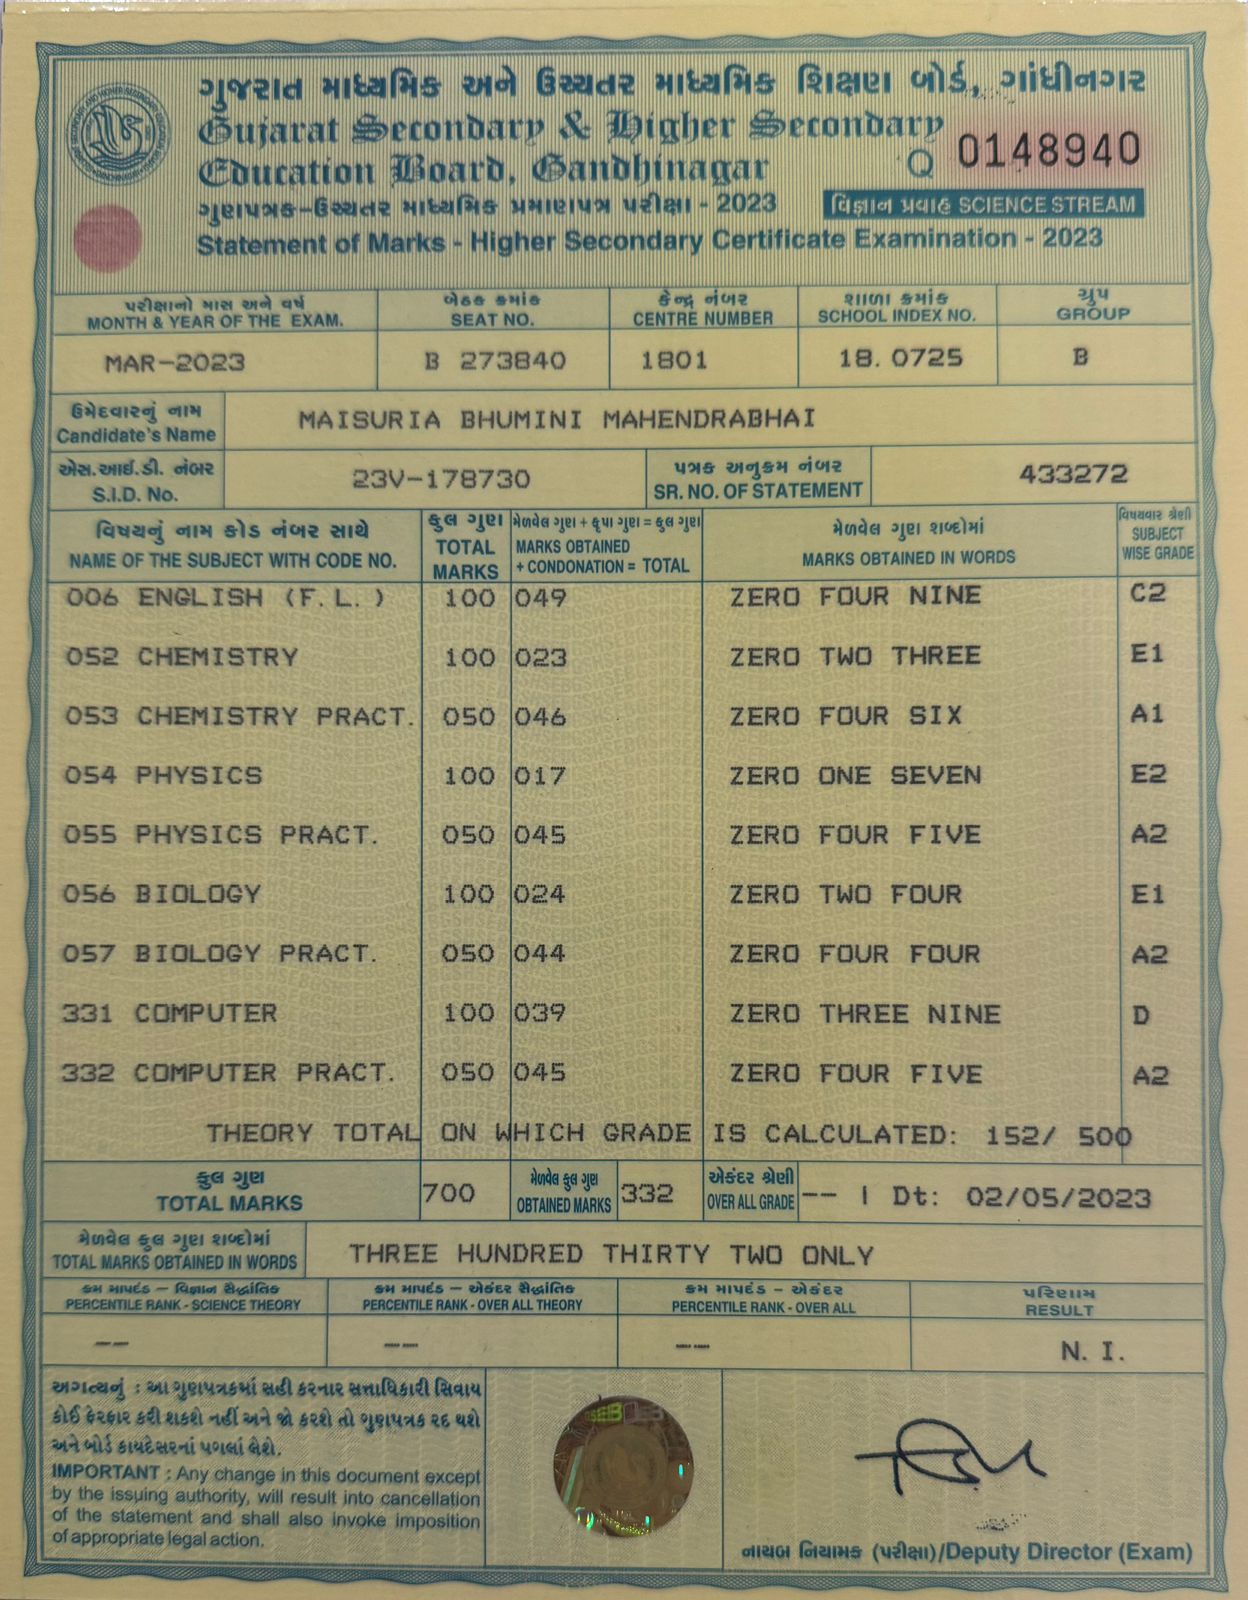 ગુજરાત માધ્યમિક અને ઉચ્ચતર માધ્યમિક શિક્ષણ બોર્ડ, ગાંધીનગર
Gujarat Secondary & Higher Secondary
Education Board, Gandhinagar
Q 0148940
ગુણપત્રક-ઉચ્ચતર માધ્યમિક પ્રમાણપત્ર પરીક્ષા - 2023
વિજ્ઞાન પ્રવાહ SCIENCE STREAM
Statement of Marks - Higher Secondary Certificate Examination - 2023
પરીક્ષાનો માસ અને વર્ષ બેઠક ક્રમાંક કેન્દ્ર નંબર શાળા ક્રમાંક ગ્રુપ
MONTH & YEAR OF THE EXAM. SEAT NO. CENTRE NUMBER SCHOOL INDEX NO. GROUP
MAR-2023 B 273840 1801 18. 0725 B
ઉમેદવારનું નામ
Candidate's Name
MAISURIA BHUMINI MAHENDRABHAI
એસ.આઈ.ડી. નંબર
S.I.D. No.
23V-178730
પત્રક અનુક્રમ નંબર
SR. NO. OF STATEMENT
433272
વિષયનું નામ કોડ નંબર સાથે
NAME OF THE SUBJECT WITH CODE NO.
કુલ ગુણ
TOTAL
MARKS
મેળવેલ ગુણ + કૃપા ગુણ = કુલ ગુણ
MARKS OBTAINED
+ CONDONATION = TOTAL
મેળવેલ ગુણ શબ્દોમાં
MARKS OBTAINED IN WORDS
વિષયવાર શ્રેણી
SUBJECT
WISE GRADE
006 ENGLISH (F. L. ) 100 049 ZERO FOUR NINE C2
052 CHEMISTRY 100 023 ZERO TWO THREE E1
053 CHEMISTRY PRACT. 050 046 ZERO FOUR SIX A1
054 PHYSICS 100 017 ZERO ONE SEVEN E2
055 PHYSICS PRACT. 050 045 ZERO FOUR FIVE A2
056 BIOLOGY 100 024 ZERO TWO FOUR E1
057 BIOLOGY PRACT. 050 044 ZERO FOUR FOUR A2
331 COMPUTER 100 039 ZERO THREE NINE D
332 COMPUTER PRACT. 050 045 ZERO FOUR FIVE A2
THEORY TOTAL ON WHICH GRADE IS CALCULATED: 152/ 500
કુલ ગુણ
TOTAL MARKS
700
મેળવેલ કુલ ગુણ
OBTAINED MARKS
332
એકંદર શ્રેણી
OVER ALL GRADE
-- | Dt: 02/05/2023
મેળવેલ કુલ ગુણ શબ્દોમાં
TOTAL MARKS OBTAINED IN WORDS
THREE HUNDRED THIRTY TWO ONLY
ક્રમ માપદંડ - વિજ્ઞાન સૈદ્ધાંતિક ક્રમ માપદંડ - એકંદર સૈદ્ધાંતિક ક્રમ માપદંડ - એકંદર પરિણામ
PERCENTILE RANK - SCIENCE THEORY PERCENTILE RANK - OVER ALL THEORY PERCENTILE RANK - OVER ALL RESULT
-- -- -- N. I.
અગત્યનું : આ ગુણપત્રકમાં સહી કરનાર સત્તાધિકારી સિવાય
કોઈ ફેરફાર કરી શકશે નહીં અને જો કરશે તો ગુણપત્રક રદ થશે
અને બોર્ડ કાયદેસરનાં પગલાં લેશે.
IMPORTANT : Any change in this document except
by the issuing authority, will result into cancellation
of the statement and shall also invoke imposition
of appropriate legal action.
નાયબ નિયામક (પરીક્ષા)/Deputy Director (Exam)